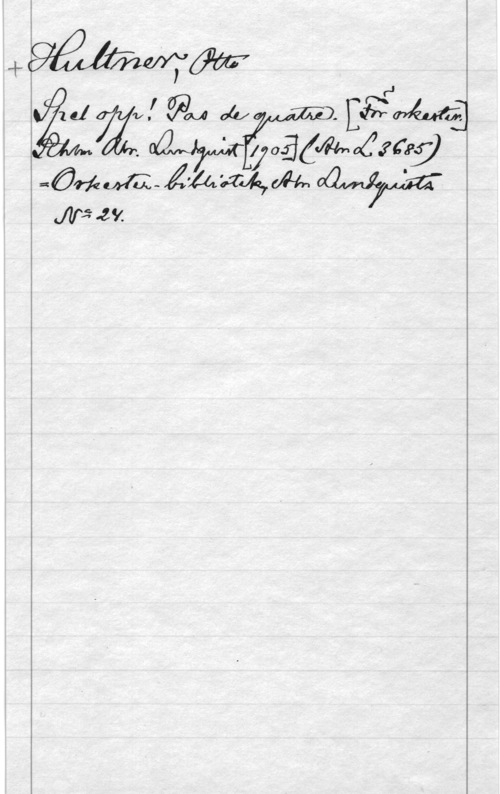 + Hultner, Otto
Spel opp! Pas de quatre. [För orkester.]
Sthlm Abr. Lundquist [1905] (Abr L. 3685)
= Orkester-bibliotek, Abr Lundquists
No 24.